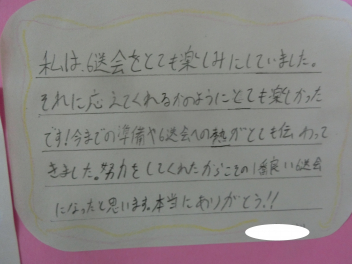 私は、6送会をとても楽しみにしていました。
それに応えてくれるかのようにとても楽しかった
です!今までの準備や6送会への熱がとても伝わって
きました。努力をしてくれたからこその1番良い6送会
になったと思います。本当にありがとう!!